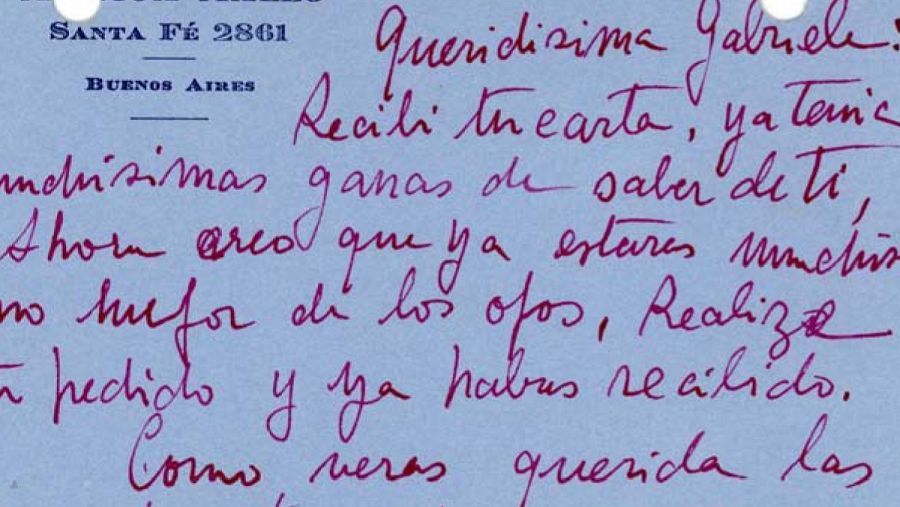 SANTA FÉ 2861
BUENOS AIRES
Queridisima Gabriela:
Recibi tu carta, ya tenia
muchisimas ganas de saber de ti,
Ahora creo que ya estaras muchisi
mo mejor de los ojos, Realize
tu pedido y ya habras recibido.
Como veras querida las